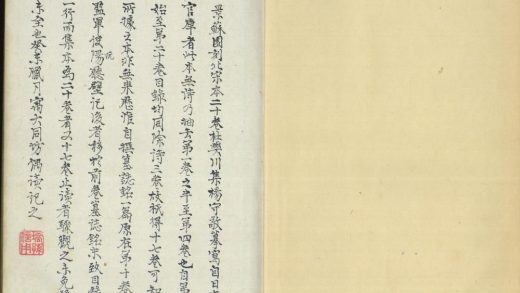 景蘇園刻北宋本二十卷杜樊川集楊守敬摹寫自日本
官庫者此本無詩乃抽去第一卷之半至第四卷也自第
始至第二十卷目錄均同除詩三卷故祇得十七卷可知
所據之本亦無異惟自撰墓誌銘一篇原在第十卷
監軍使院廳壁記後者移於前卷墓誌銘末致目錄
一行而集本為二十卷者又十七卷止讀者驟觀之未免
未全也癸未臘月寓大同偶讀記之